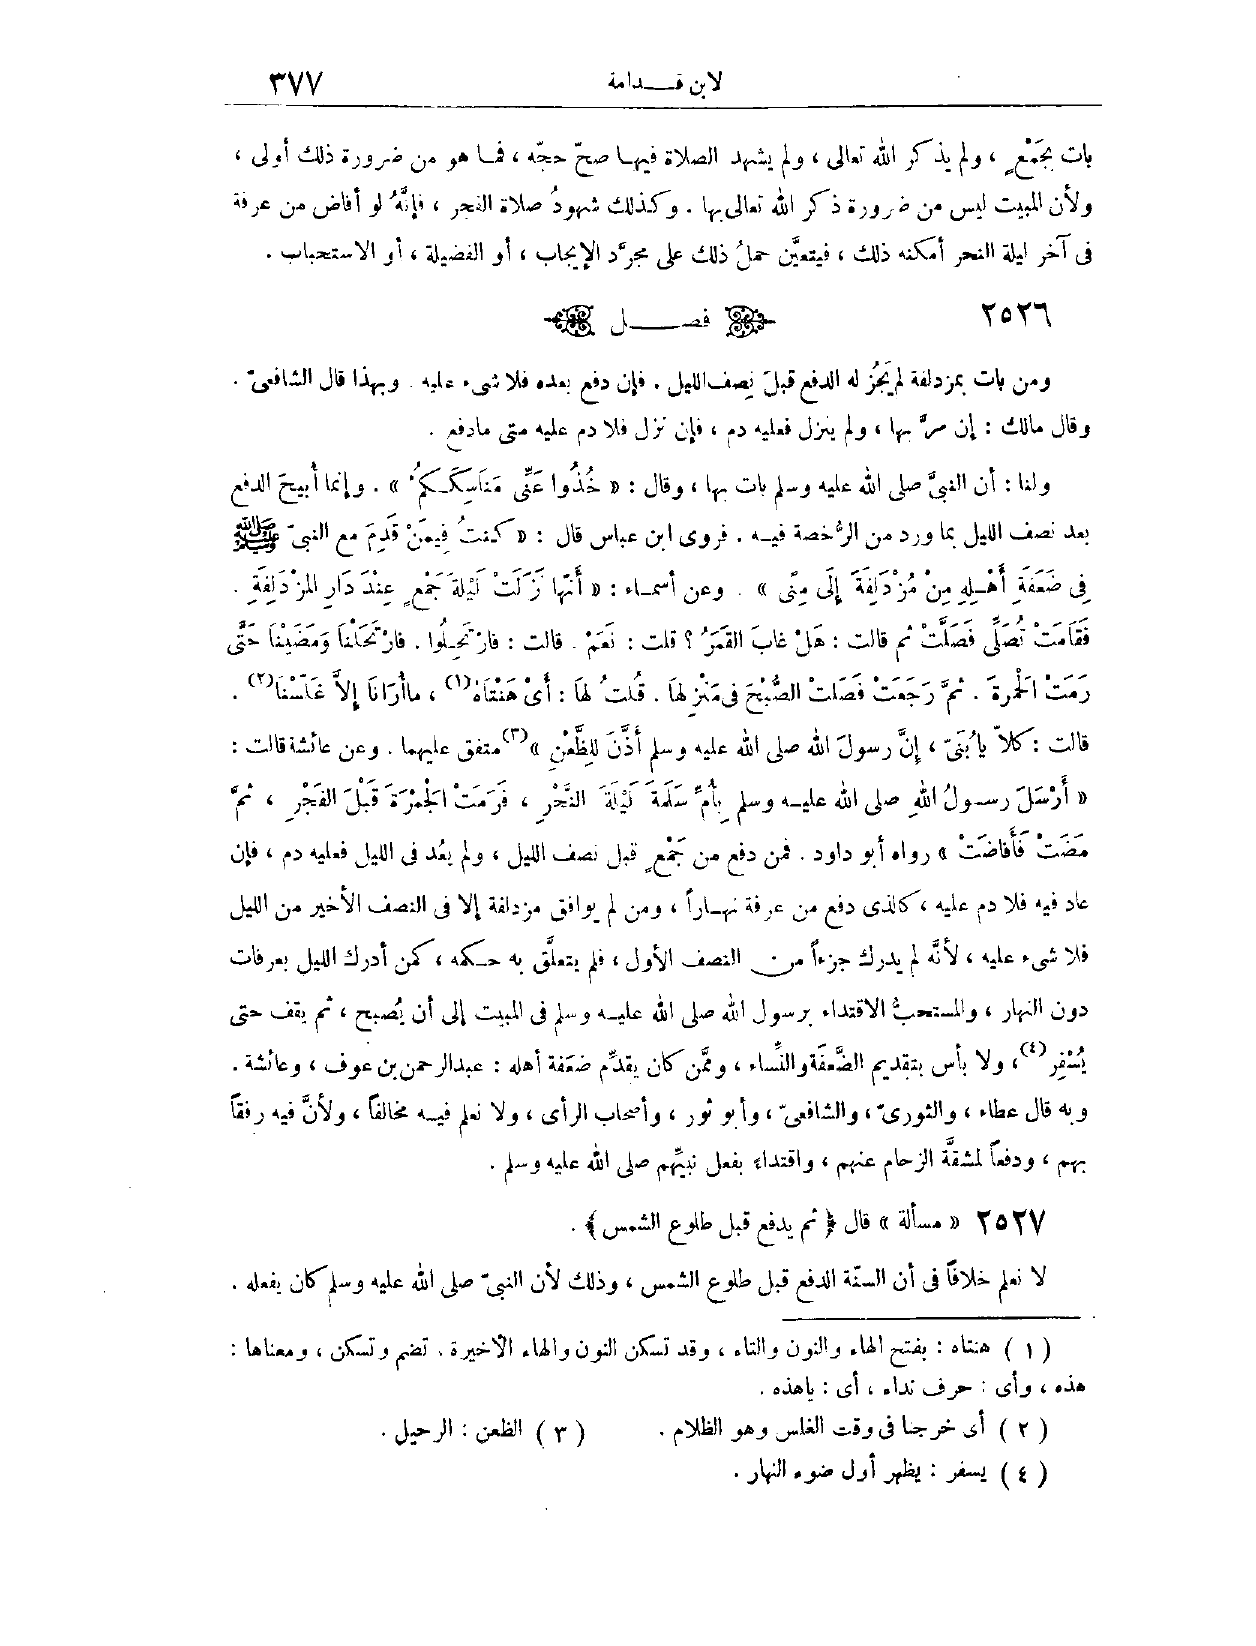 لابن قـــدامة ٣٧٧
بات بجَمْعٍ ، ولم يذكر الله تعالى ، ولم يشهد الصلاة فيهـا صحّ حجّه ، فمـا هو من ضرورة ذلك أولى ،
ولأن المبيت ليس من ضرورة ذكر الله تعالى بها . وكذلك شهودُ صلاة الفجر ، فإنَّهُ لو أفاض من عرفة
فى آخر ليلة النحر أمكنه ذلك ، فيتعيَّن حملُ ذلك على مجرَّد الإيجاب ، أو الفضيلة ، أو الاستحباب .
٢٥٢٦ فصــــل
ومن بات بمزدلفة لم يَجُز له الدفع قبلَ نِصف الليل . فإن دفع بعده فلا شىء عليه . وبهذا قال الشافعىّ .
وقال مالك : إن مرَّ بها ، ولم ينزل فعليه دم ، فإن نزل فلا دم عليه متى مادفع .
ولنا : أن النبىَّ صلى الله عليه وسلم بات بها ، وقال : « خُذُوا عَنِّى مَنَاسِكَـكمُ » . وإنما أُبيحَ الدفع
بعد نصف الليل بما ورد من الرُّخصة فيـه . فروى ابن عباس قال : « كنتُ فِيمَنْ قَدِمَ مع النبىّ ﷺ
فِى ضَعَفَةِ أَهْـلِهِ مِنْ مُزْدَلِفَةَ إِلَى مِنًى » . وعن أسمـاء : « أَنَّهَا نَزَلَتْ لَيْلَةَ جَمْعٍ عِنْدَ دَارِ المُزْدَلِفَةِ .
فَقَامَتْ تُصَلِّى فَصَلَّتْ ثم قالت : هَلْ غابَ القَمَرُ ؟ قلت : نَعَمْ . قالت : فارْتَحِـلُوا . فارْتَحَلْنَا وَمَضَيْنَا حَتَّى
رَمَتْ الجَمرةَ . ثمَّ رَجَعَتْ فَصَلت الصُّبْحَ فى مَنْزِلِهَا . قُلتُ لها : أَىْ هَنْتَاهُ(١) ، ماأُرَانَا إلاَّ غَلَّسْنا(٢) .
قالت : كلاّ يابُنَىّ ، إنَّ رسولَ الله صلى الله عليه وسلم أَذَّنَ للِظُّعْنِ »(٣) متفق عليهما . وعن عائشة قالت :
« أَرْسَلَ رسـولُ اللهِ صلى الله عليـه وسلم بِأُمِّ سَلَمَةَ لَيْلَةَ النَّحْرِ ، فَرَمَتْ الجَمْرَةَ قَبْلَ الفَجْرِ ، ثمَّ
مَضَتْ فَأَفَاضَتْ » رواه أبو داود . فمن دفع من جَمْعٍ قبل نصف الليل ، ولم يعُد فى الليل فعليه دم ، فإن
عاد فيه فلا دم عليه ، كالذى دفع من عرفة نهـاراً ، ومن لم يوافق مزدلفة إلا فى النصف الأخير من الليل
فلا شىء عليه ، لأنَّه لم يدرك جزءاً من النصف الأول ، فلم يتعلَّق به حـكمه ، كمن أدرك الليل بعرفات
دون النهار ، والمستحبُّ الاقتداء برسول الله صلى الله عليـه وسلم فى المبيت إلى أن يُصبح ، ثم يقف حتى
يُسْفِر(٤) ، ولا بأس بتقديم الضَّعَفَة والنِّساء ، وممَّن كان يقدِّم ضعَفة أهله : عبدالرحمن بن عوف ، وعائشة .
وبه قال عطاء ، والثورىّ ، والشافعىّ ، وأبو ثور ، وأصحاب الرأى ، ولا نعلم فيـه مخالفاً ، ولأنَّ فيه رفقاً
بهم ، ودفعاً لمشقَّة الزحام عنهم ، واقتداء بفعل نبيِّهم صلى الله عليه وسلم .
٢٥٢٧ « مسألة » قال ﴿ ثم يدفع قبل طلوع الشمس ﴾ .
لا نعلم خلافاً فى أن السنّة الدفع قبل طلوع الشمس ، وذلك لأن النبىّ صلى الله عليه وسلم كان يفعله .
( ١ ) هنتاه : بفتح الهاء والنون والتاء ، وقد تسكن النون والهاء الأخيرة . تضم وتسكن ، ومعناها :
هذه ، وأى : حرف نداء ، أى : ياهذه .
( ٢ ) أى خرجنا فى وقت الغلس وهو الظلام . ( ٣ ) الظعن : الرحيل .
( ٤ ) يسفر : يظهر أول ضوء النهار .